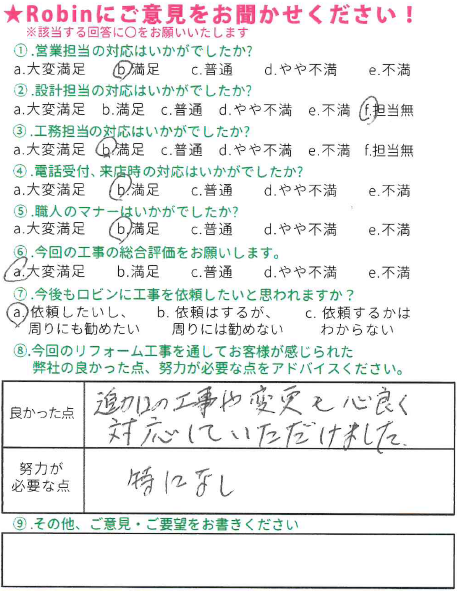 ★Robinにご意見をお聞かせください！
※該当する回答に〇をお願いいたします
①.営業担当の対応はいかがでしたか?
a.大変満足 b.満足 c.普通 d.やや不満 e.不満
②.設計担当の対応はいかがでしたか?
a.大変満足 b.満足 c.普通 d.やや不満 e.不満 f.担当無
③.工務担当の対応はいかがでしたか?
a.大変満足 b.満足 c.普通 d.やや不満 e.不満 f.担当無
④.電話受付、来店時の対応はいかがでしたか?
a.大変満足 b.満足 c.普通 d.やや不満 e.不満
⑤.職人のマナーはいかがでしたか?
a.大変満足 b.満足 c.普通 d.やや不満 e.不満
⑥.今回の工事の総合評価をお願いします。
a.大変満足 b.満足 c.普通 d.やや不満 e.不満
⑦.今後もロビンに工事を依頼したいと思われますか？
a.依頼したいし、 b.依頼はするが、 c.依頼するかは
周りにも勧めたい 周りには勧めない わからない
⑧.今回のリフォーム工事を通してお客様が感じられた
弊社の良かった点、努力が必要な点をアドバイスください。
良かった点
追加の工事や変更も心良く
対応していただけました。
努力が
必要な点
特になし
⑨.その他、ご意見・ご要望をお書きください